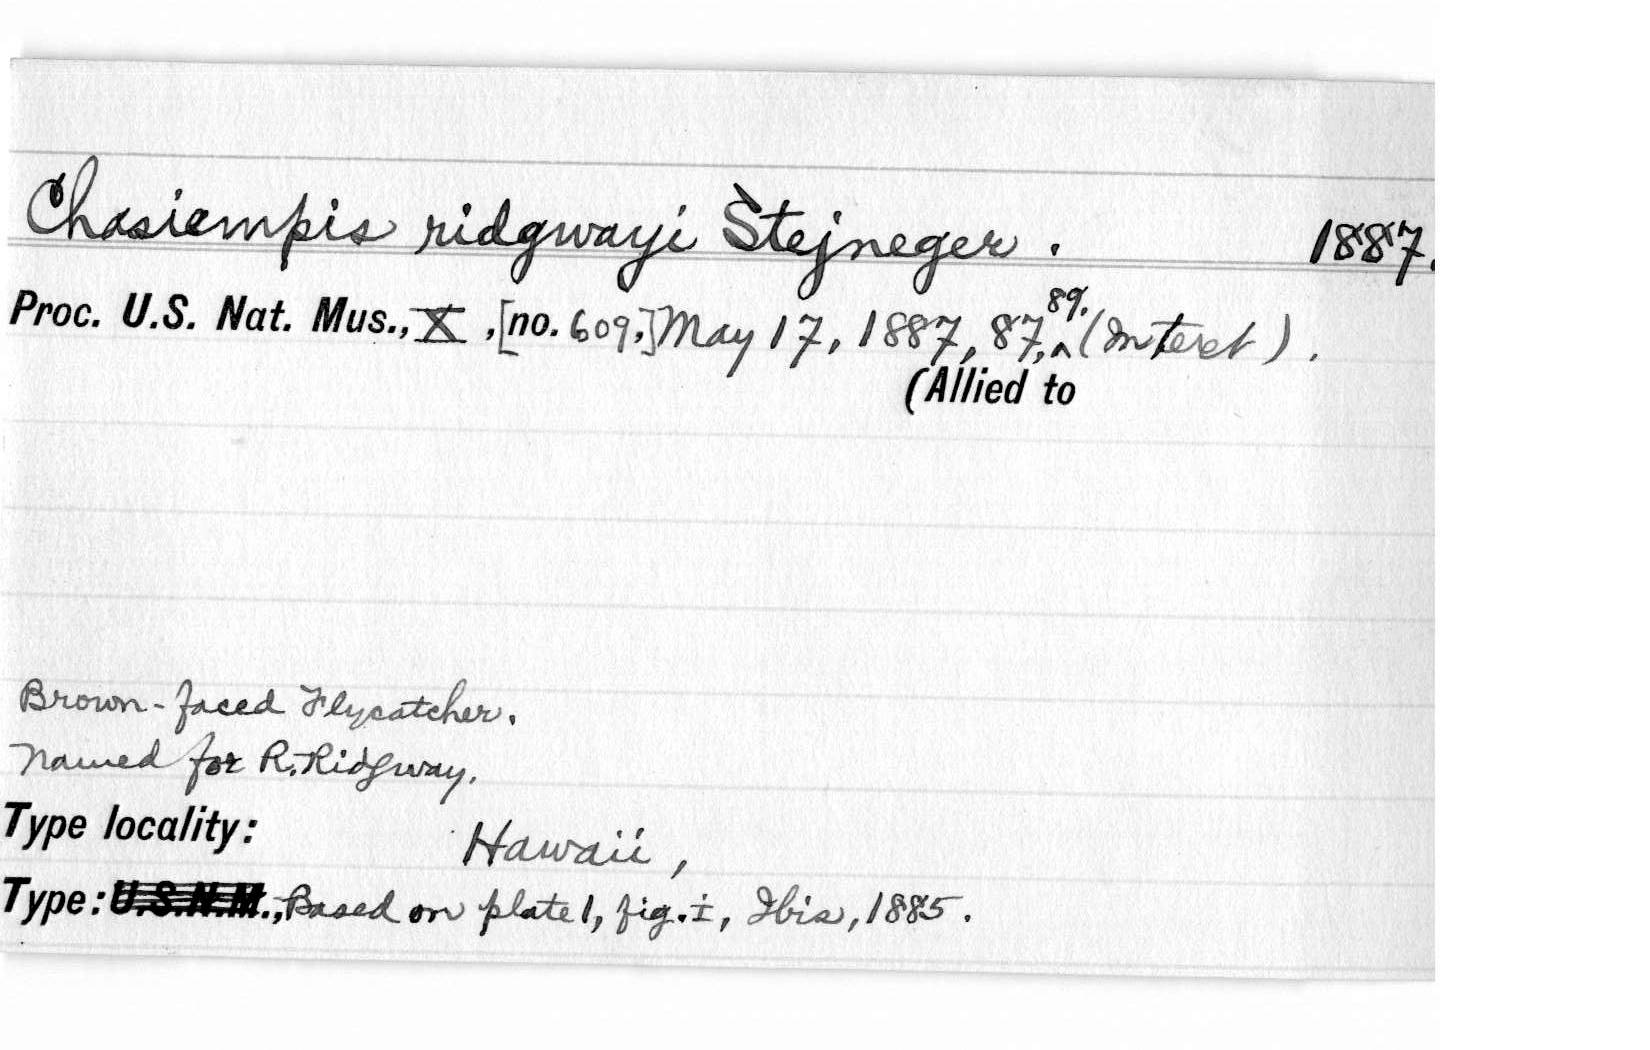 Chasiempis ridgwayi Stejneger. 1887.
Proc. U.S. Nat. Mus., X, [no. 609,] May 17, 1887, 87, 89. (in text).
(Allied to
Brown-faced Flycatcher.
Named for R. Ridgway.
Type locality: Hawaii,
Type: U.S.N.M., Based on plate 1, fig. i, Ibis, 1885.